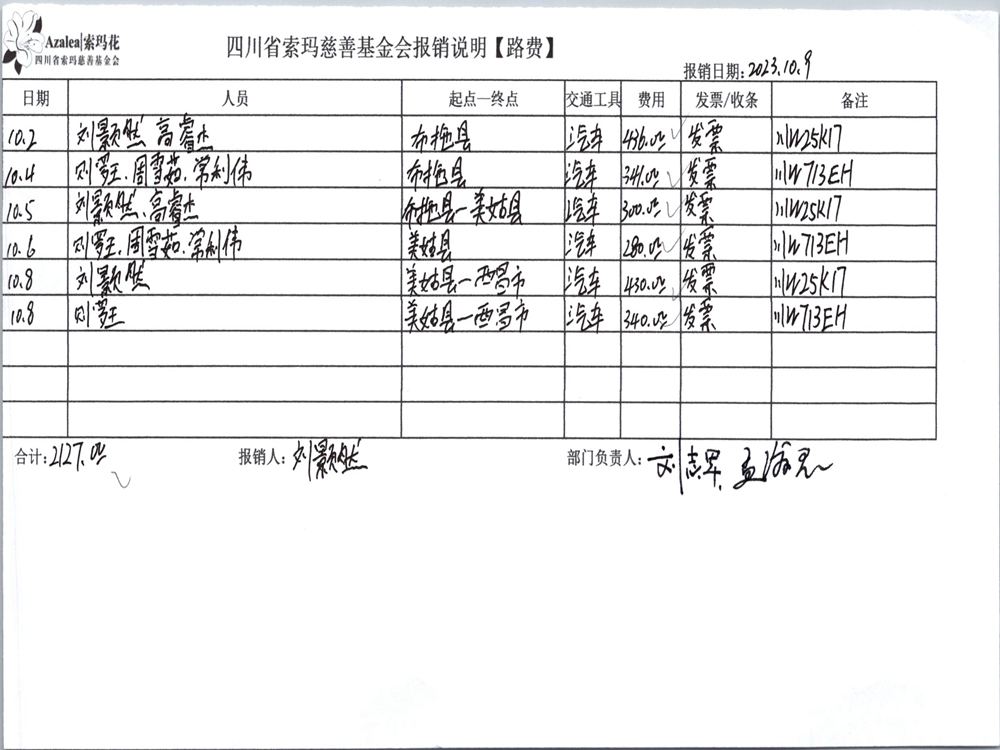 Azalea|索玛花
四川省索玛慈善基金会
四川省索玛慈善基金会报销说明【路费】
报销日期:2023.10.9
日期 人员 起点—终点 交通工具 费用 发票/收条 备注
10.2 刘颢然 高睿杰 布拖县 汽车 436.00 发票 川W25K17
10.4 周雪茹.常利伟 布拖县 汽车 341.00 发票 川W713EH
10.5 刘颢然、高睿杰 布拖县—美姑县 汽车 300.00 发票 川W25K17
10.6 周雪茹.常利伟 美姑县 汽车 280.00 发票 川W713EH
10.8 刘颢然 美姑县—西昌市 汽车 430.00 发票 川W25K17
10.8 美姑县—西昌市 汽车 340.00 发票 川W713EH
合计:2127.00 报销人: 刘颢然 部门负责人: